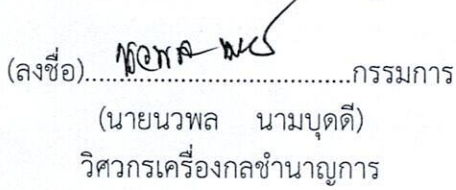 (ลงชื่อ)....................................กรรมการ
(นายนวพล นามบุดดี)
วิศวกรเครื่องกลชำนาญการ